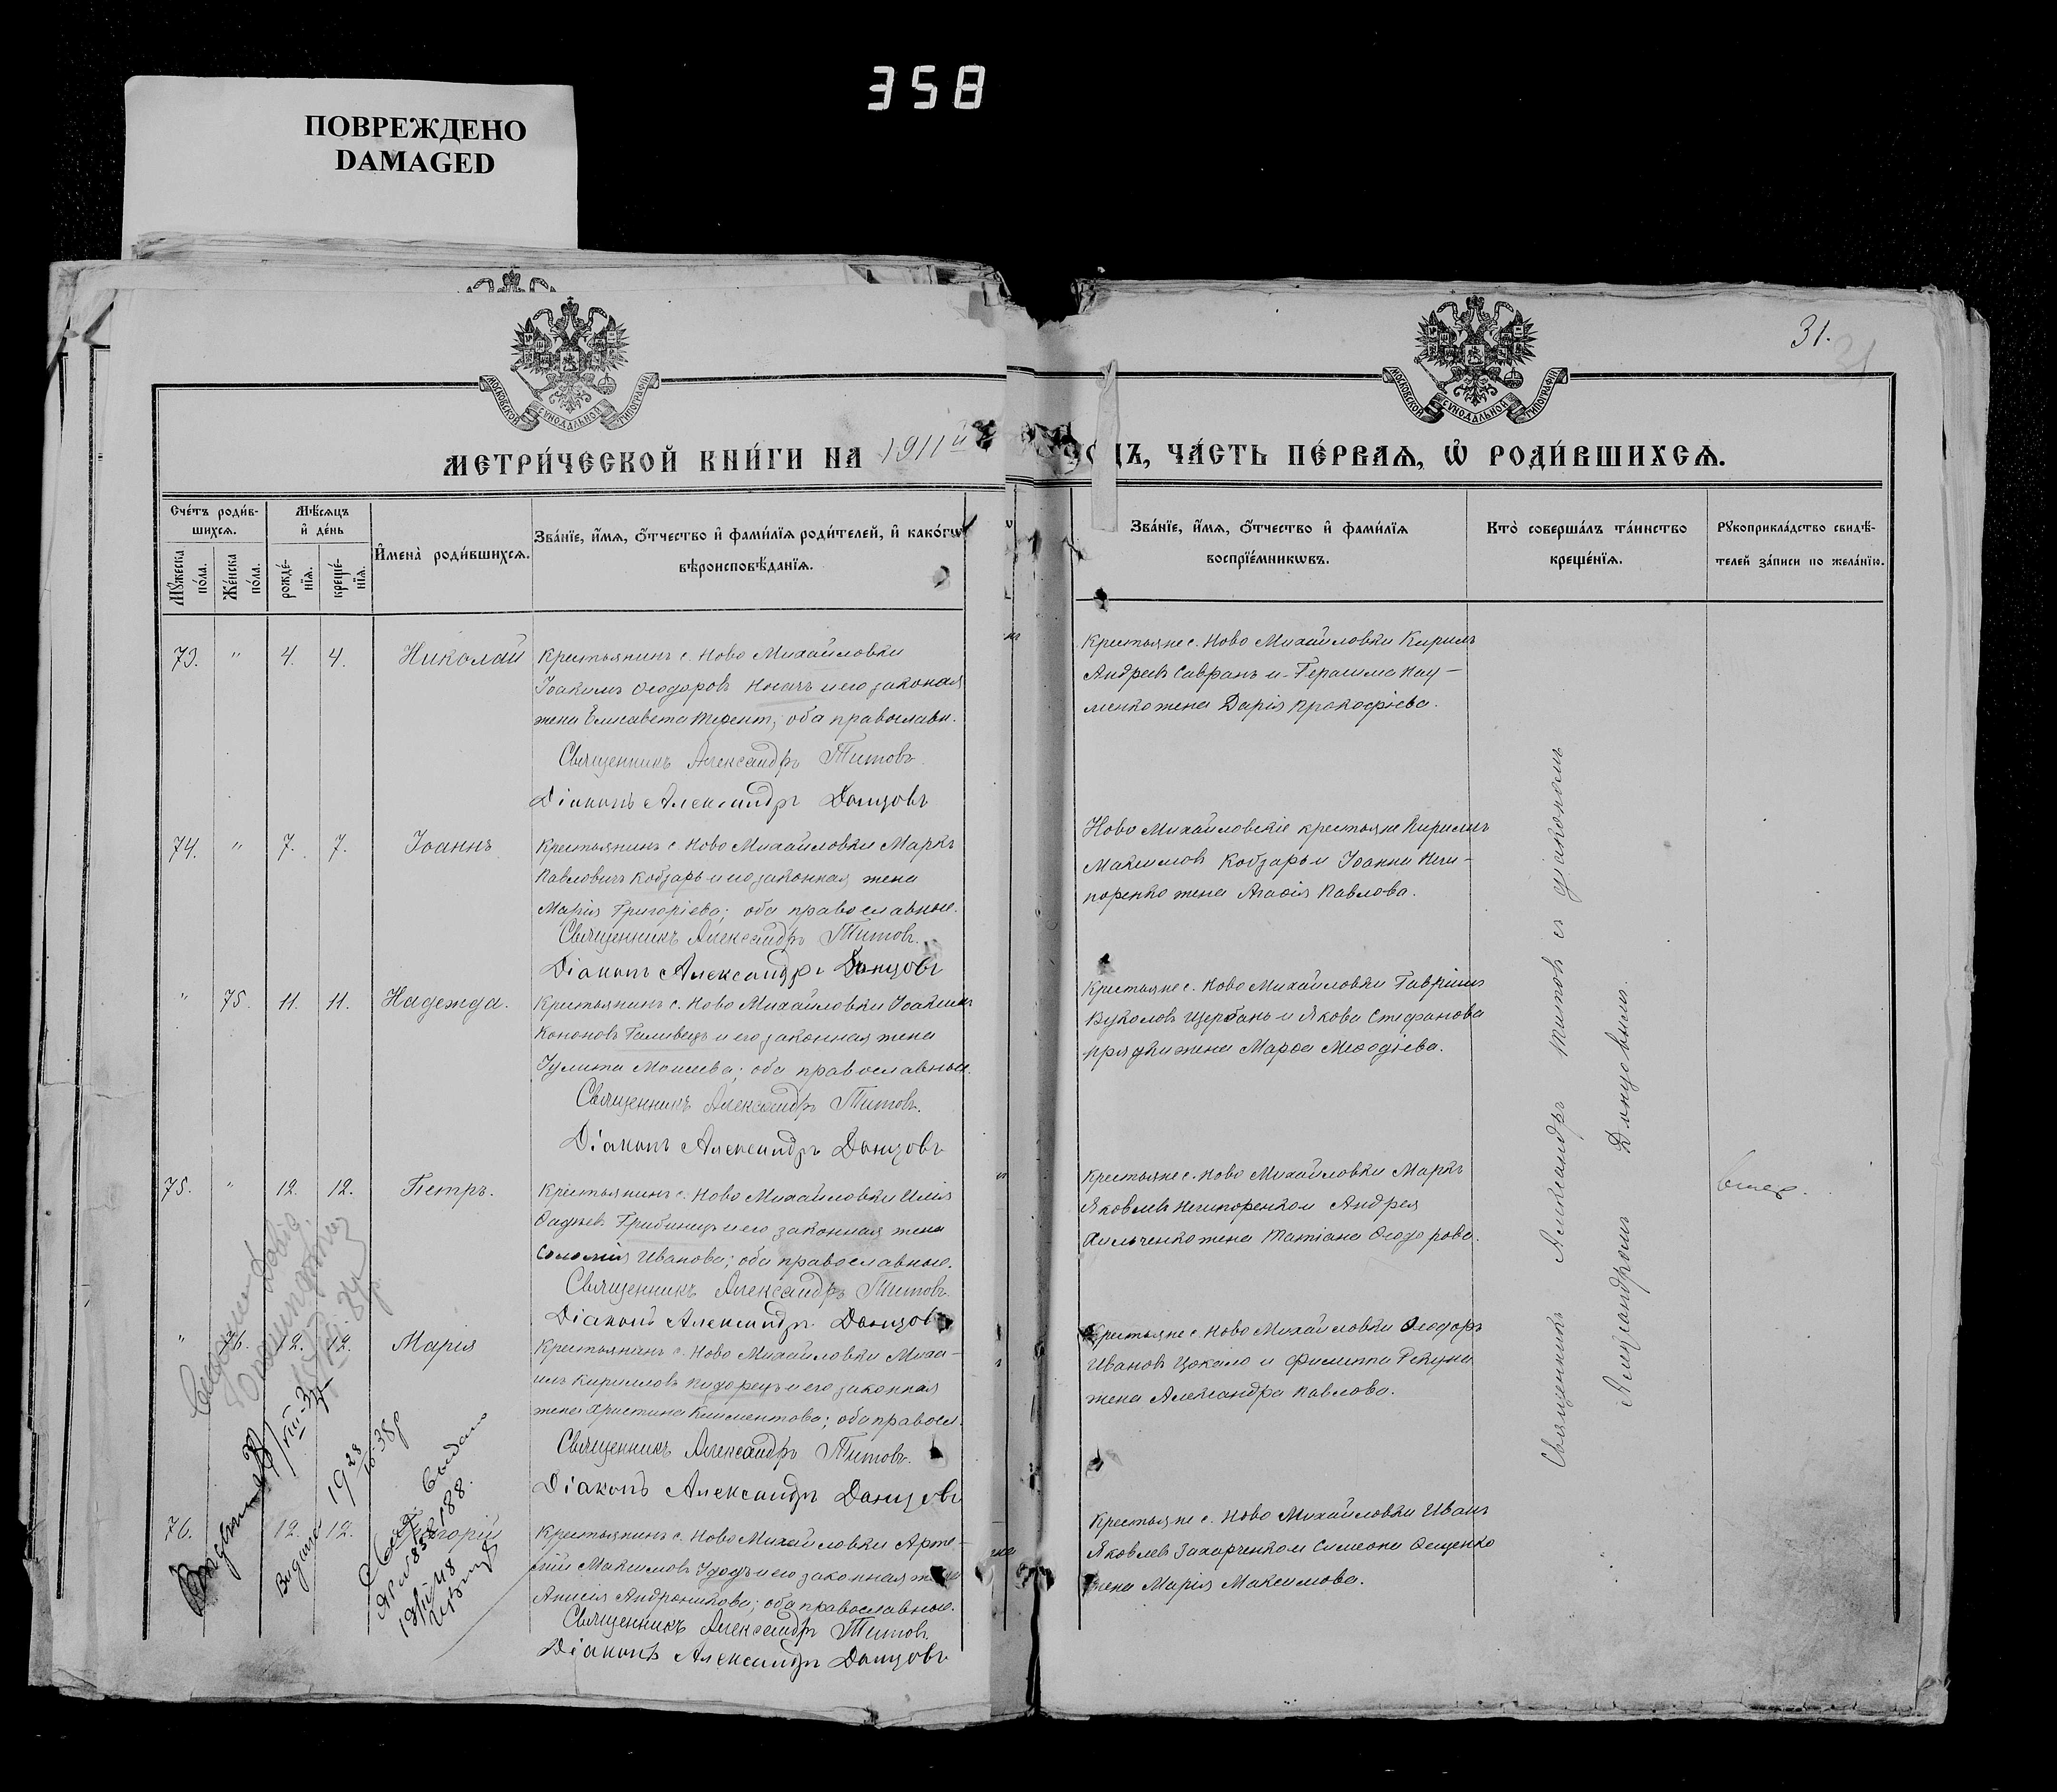 358
ПОВРЕЖДЕНО
DAMAGED
31.
31
МОСКОВСКОЙ СѴНОДАЛЬНОЙ ТИПОГРАФІИ
МОСКОВСКОЙ СѴНОДАЛЬНОЙ ТИПОГРАФІИ
МЕТРИ́ЧЕСКОЙ КНИ́ГИ НА 1911й
ЧА́СТЬ ПЕ́РВАѦ, Ѽ РОДИ́ВШИХСѦ.
Сче́тъ роди́в-
шихсѧ.
Мꙋжеска по́ла.
Же́нска по́ла.
Мѣ́сѧцъ
и҆ де́нь
рожде́-
нїѧ.
креще́-
нїѧ.
И҆мена̀ роди́вшихсѧ.
Зва́нїе, и҆́мѧ, ѻ҆́тчество и҆ фами́лїѧ роди́телей, и҆ како́гѡ
вѣроисповѣ́данїѧ.
Зва́нїе, и҆́мѧ, ѻ҆́тчество и҆ фами́лїѧ
воспрїе́мникѡвъ.
Кто̀ соверша́лъ та́инство
креще́нїѧ.
Рꙋкоприкла́дство свидѣ́-
телей за́писи по жела́нїю.
73. " 4. 4. Николай Крестьянинъ с. Ново Михайловки
Іоакимъ Ѳеодоровъ Носачъ и его законая
жена Елисавета Терент; оба православн.
Священникъ Александръ Титовъ.
Діаконъ Александръ Донцовъ
Крестьяне с. Ново Михайловки Кирилъ
Андреевъ Савранъ и Герасима Нау-
менко жена Дарія Прокофіева.
74. " 7. 7. Іоаннъ Крестьянинъ с. Ново Михайловки Маркъ
Павловичъ Кобзарь и его законная жена
Марія Григоріева; оба православные.
Священникъ Александръ Титовъ.
Діаконъ Александръ Донцовъ
Ново Михайловскіе крестьяне Кирилъ
Максимовъ Кобзарь и Іоанна Ничи-
поренко жена Агафія Павлова.
" 75. 11. 11. Надежда. Крестьянинъ с. Ново Михайловки Іоакимъ
Кононовъ и его законная жена
Іулита Моисеева; оба православные.
Священникъ Александръ Титовъ.
Діаконъ Александръ Донцовъ
Крестьяне с. Ново Михайловки Гавріилъ
Вуколовъ Щербань и Якова Стефанова
Прядки жена Марѳа Меѳодіева.
75. " 12. 12. Петръ. Крестьянинъ с. Ново Михайловки Илія
Гребиницъ и его законная жена
Соломія Иванова; оба православные.
Священникъ Александръ Титовъ
Діаконъ Александръ Донцовъ
Крестьяне с. Ново Михайловки Маркъ
Яковлевъ Ничипоренко и Андрея
Хильченко жена Татіана Ѳеодорова.
" 76. 12. 12. Марія Крестьянинъ с. Ново Михайловки Миха-
илъ Кирилловъ Пидорецъ и его законная
жена Христина Климентова; оба правосл.
Священникъ Александръ Титовъ.
Діаконъ Александръ Донцовъ
Крестьяне с. Ново Михайловки Ѳеодоръ
Ивановъ Цокало и Филиппа Рекуна
жена Александра Павлова.
76. 12. 12. Крестьянинъ с. Ново Михайловки Арте-
мій Максимовъ Удодъ и его законная жена
Анисія Андроникова; оба православные.
Священникъ Александръ Титовъ
Діаконъ Александръ Донцовъ
Крестьяне с. Ново Михайловки Иванъ
Яковлевъ Захарченко и Симеона Ѳещенко
жена Марія Максимова.
Священникъ Александръ Титовъ съ діакономъ
Александромъ Донцовымъ.